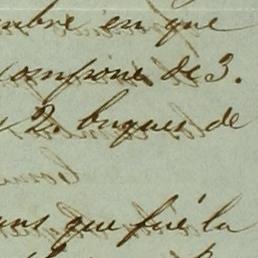 mbre en que
compone de 3.
2. buques de
ans que fué la